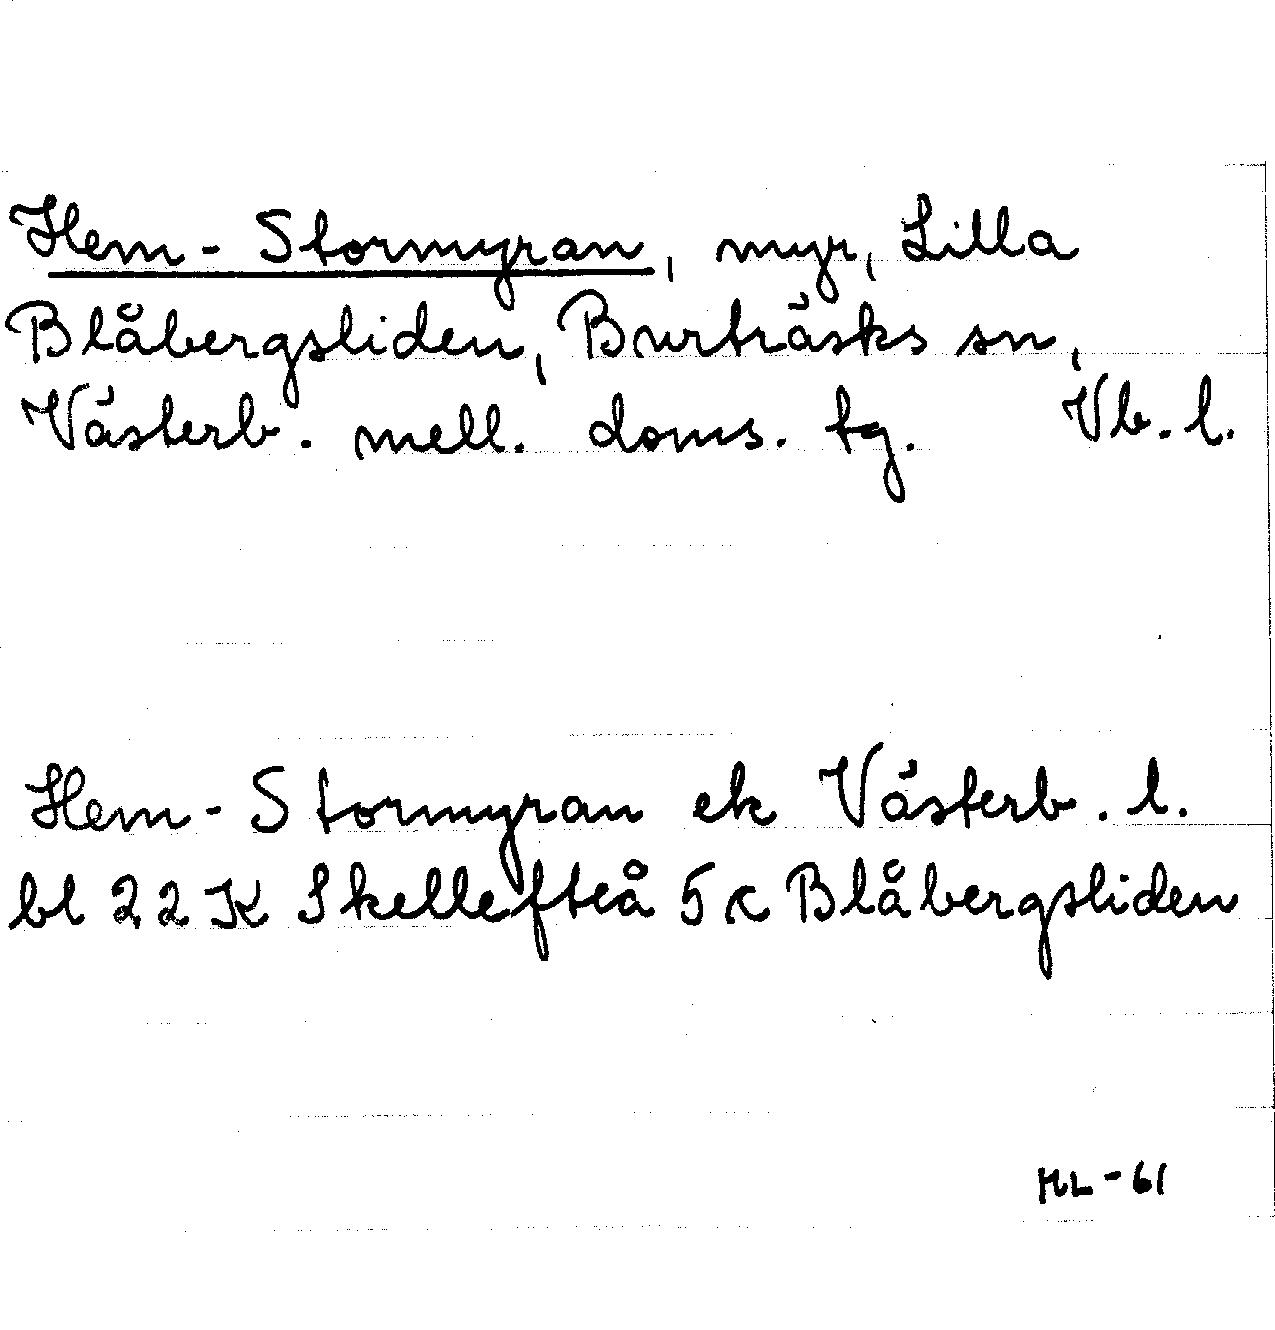 Hem-Stormyran, myr, Lilla
Blåbergsliden, Burträsks sn,
Västerb. mell. doms. tg. Vb. l.
Hem-Stormyran ek Västerb. l.
bl 22 K Skellefteå 5 c Blåbergsliden
ML-61